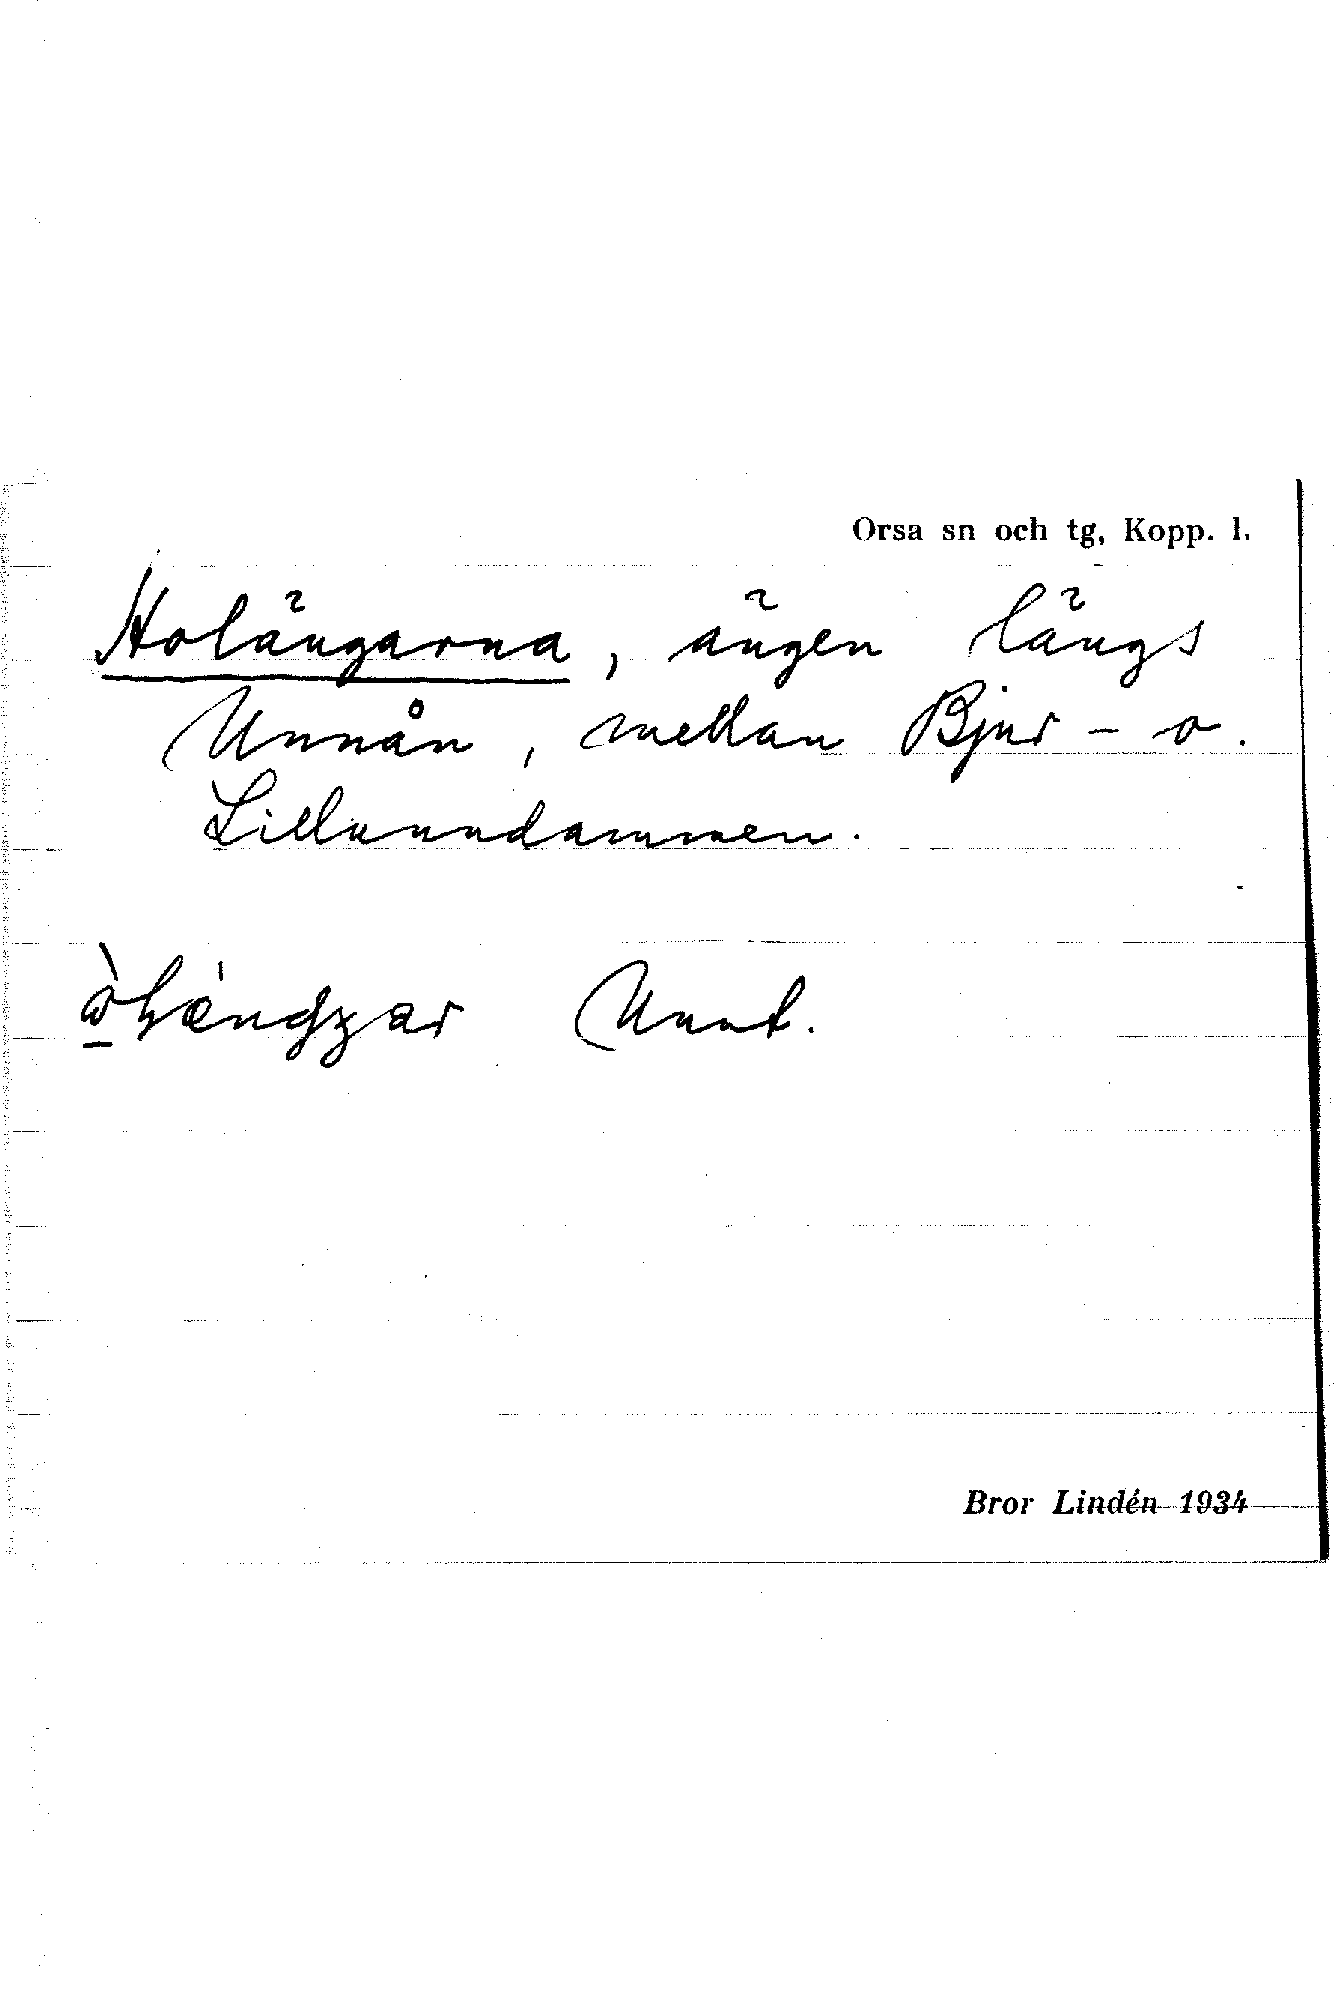 Orsa sn och tg, Kopp. l.
Holängarna, ängen längs
Unnån, mellan Bjur - o.
Lillunndammen.
Unnt.
Bror Lindén 1934